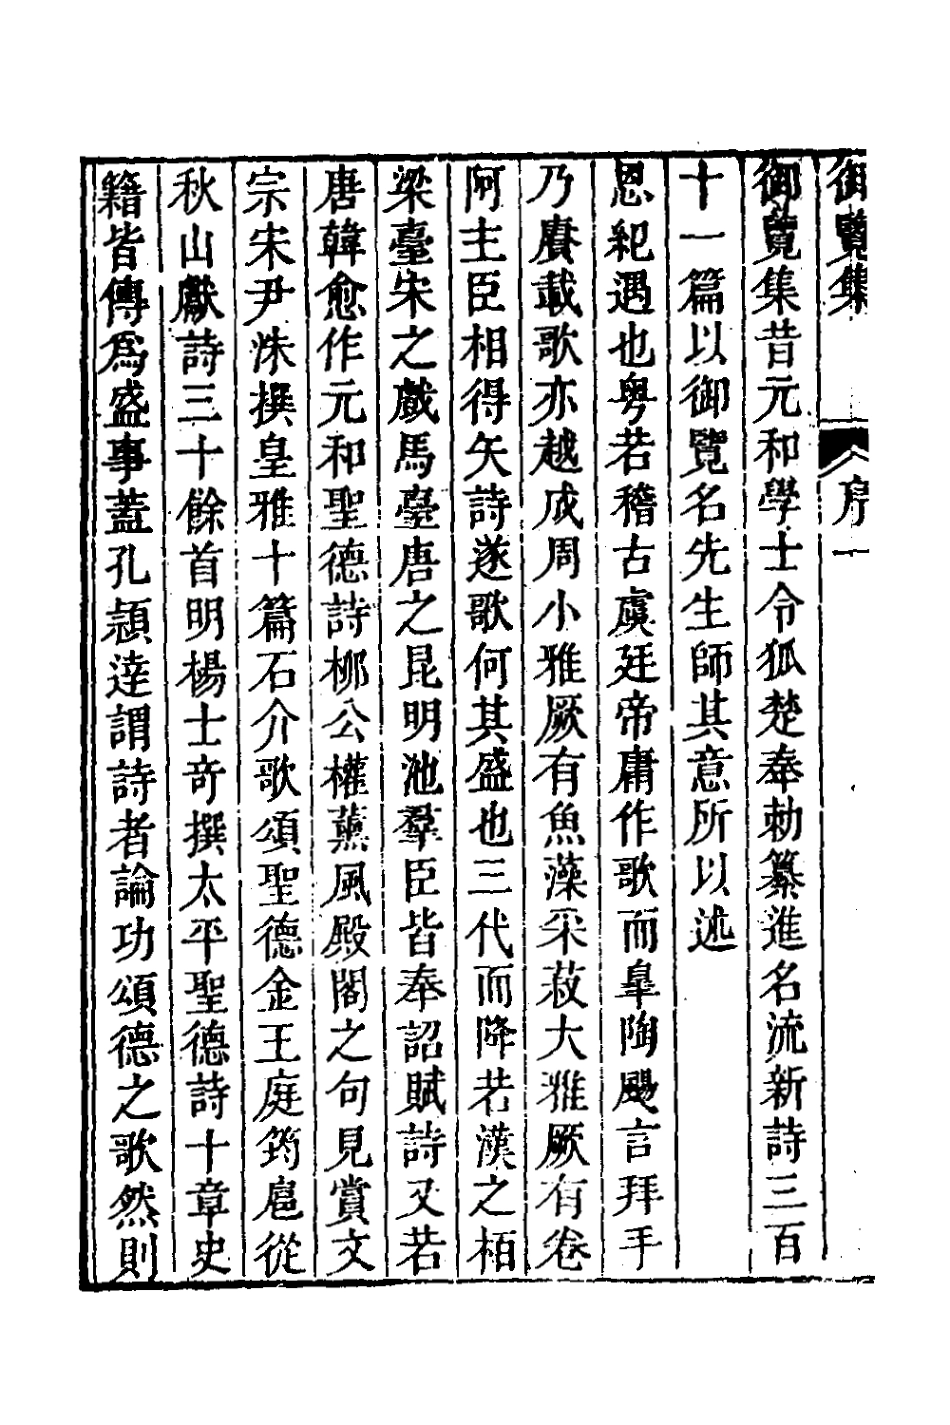 御覽集 序 一
御覽集昔元和學士令狐楚奉勅纂進名流新詩三百
十一篇以御覽名先生師其意所以述
恩紀遇也粤若稽古虞廷帝庸作歌而臯陶颺言拜手
乃賡載歌亦越成周小雅厥有魚藻采菽大雅厥有卷
阿主臣相得矢詩遂歌何其盛也三代而降若漢之栢
梁臺宋之戲馬臺唐之昆明池羣臣皆奉詔賦詩又若
唐韓愈作元和聖德詩柳公權薰風殿閣之句見賞文
宗宋尹洙撰皇雅十篇石介歌頌聖德金王庭筠扈從
秋山獻詩三十餘首明楊士奇撰太平聖德詩十章史
籍皆傳爲盛事蓋孔頴逹謂詩者論功頌德之歌然則